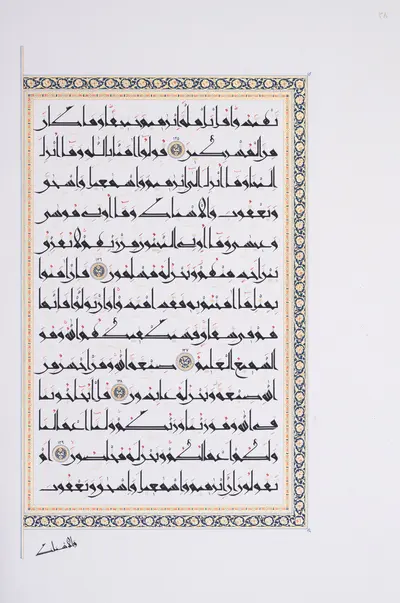 تهتدوا قل بل ملة ابرهيم حنيفا وما كان
من المشركين ١٣٥ قولوا امنا بالله وما انزل
الينا وما انزل الى ابرهيم واسمعيل واسحق
ويعقوب والاسباط وما اوتي موسى
وعيسى وما اوتي النبيون من ربهم لا نفرق
بين احد منهم ونحن له مسلمون ١٣٦ فان امنوا
بمثل ما امنتم به فقد اهتدوا وان تولوا فانما
هم في شقاق فسيكفيكهم الله وهو
السميع العليم ١٣٧ صبغة الله ومن احسن من
الله صبغة ونحن له عبدون ١٣٨ قل اتحاجوننا
في الله وهو ربنا وربكم ولنا اعملنا
ولكم اعملكم ونحن له مخلصون ١٣٩ ام
تقولون ان ابرهيم واسمعيل واسحق ويعقوب
والاسباط